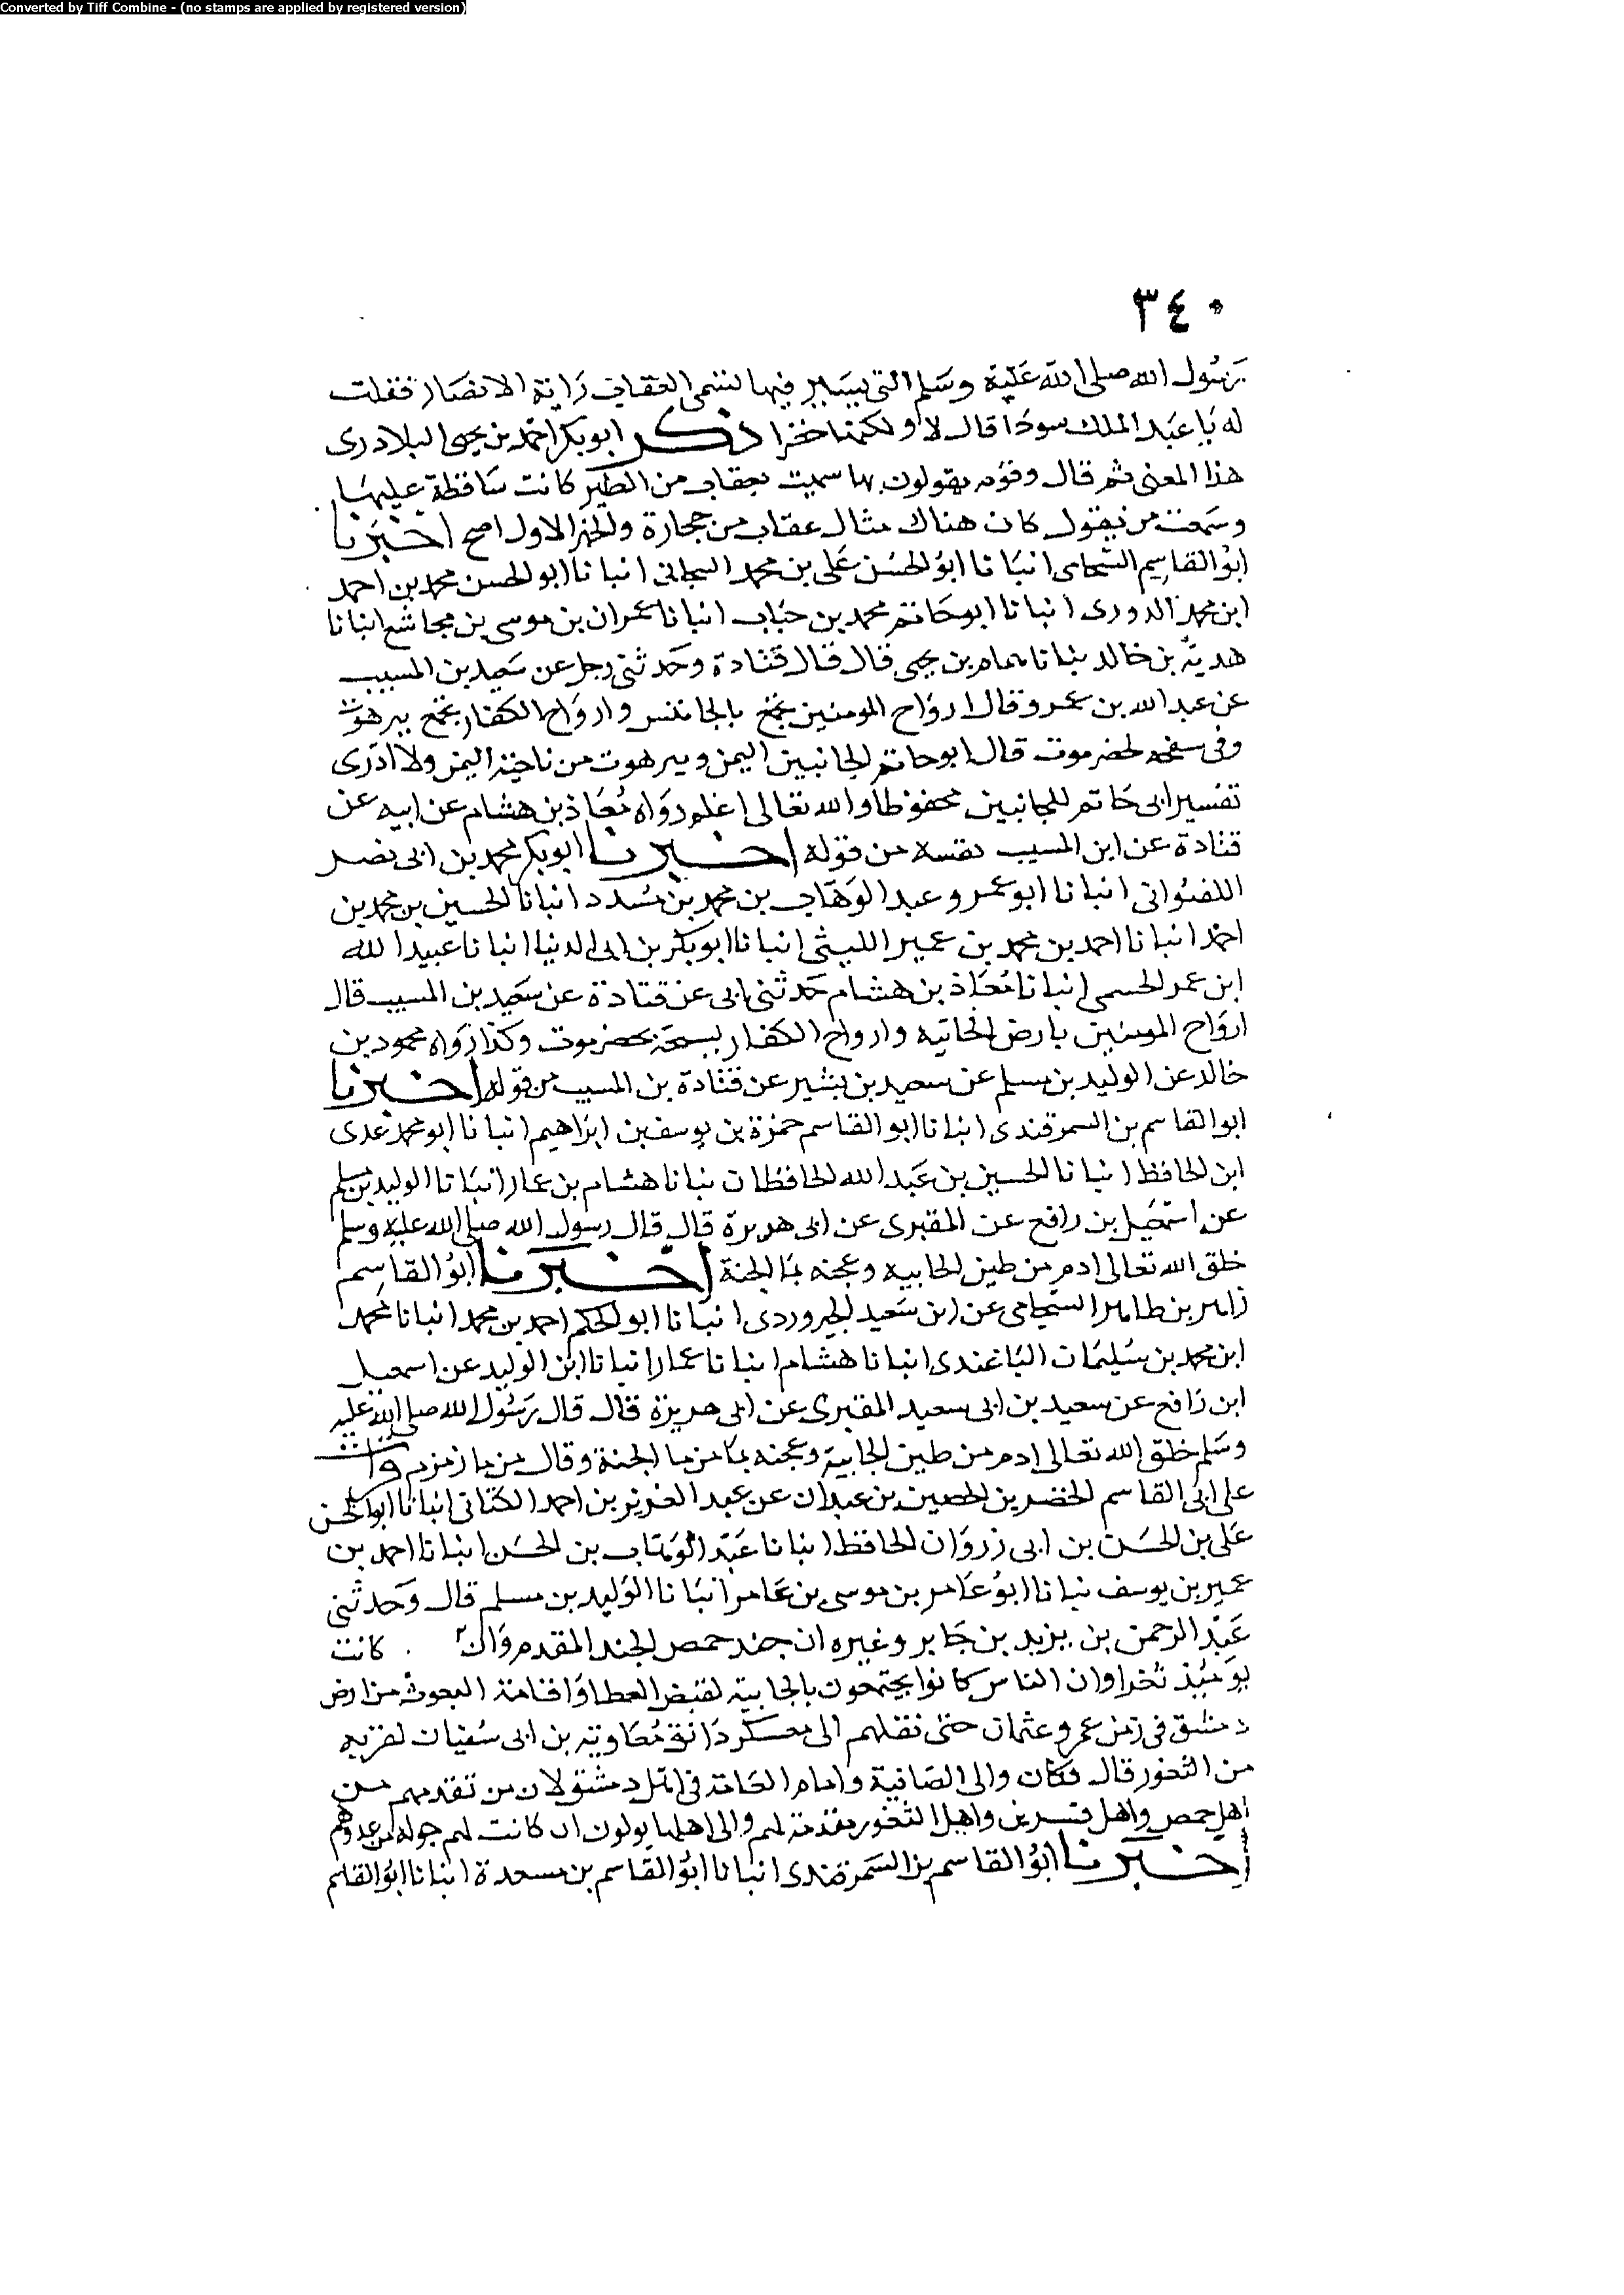 Converted by Tiff Combine - (no stamps are applied by registered version)
٣٤٠
رسول الله صلى الله عليه وسلم التي يسير فيها تسمى العقاب راية الانصار فقلت
له يا عبد الملك سودا قال لا ولكنها خضرا ذكر ابو بكر احمد بن يحيى البلادرى
هذا المعنى ثم قال وقوم يقولون بها سميت بعقاب من الطير كانت ساقطة عليها
وسمعت من يقول كان هناك مثال عقاب من حجارة والخبر الاول اصح اخبرنا
ابو القاسم الشحامى انبانا ابو الحسن على بن محمد البحاثى انبانا ابو الحسن محمد بن احمد
ابن محمد الدورى انبانا ابو حاتم محمد بن حباب انبانا عمران بن موسى بن مجاشع انبانا
هدبة بن خالد نبانا همام بن يحيى قال قال قتادة وحدثنى رجل عن سعيد بن المسيب
عن عبد الله بن عمرو قال ارواح المومنين تجمع بالجانبين وارواح الكفار تجمع ببرهوت
وفى سبخه لحضرموت قال ابو حاتم الجانبين اليمن وبرهوت من ناحية اليمن ولا ادرى
تفسير ابى حاتم للجانبين محفوظا والله تعالى اعلم رواه معاذ بن هشام عن ابيه عن
قتادة عن ابن المسيب نفسه من قوله اخبرنا ابو بكر محمد بن ابى نصر
اللفتوانى انبانا ابو عمرو عبد الوهاب بن محمد بن مسدد انبانا الحسين بن محمد بن
احمد انبانا احمد بن محمد بن عمير الليثى انبانا ابو بكر بن ابى الدنيا انبانا عبيد الله
ابن عمر الجسمى انبانا معاذ بن هشام حدثنى ابى عن قتادة عن سعيد بن المسيب قال
ارواح المومنين بارض الجابيه وارواح الكفار بسبخة بحضرموت وكذا رواه محمود بن
خالد عن الوليد بن مسلم عن سعيد بن بشير عن قتادة بن المسيب من قوله اخبرنا
ابو القاسم بن السمرقندى انبانا ابو القاسم حمزة بن يوسف بن ابراهيم انبانا ابو محمد عدى
ابن الحافظ انبانا الحسين بن عبد الله الحافظان نبانا هشام بن عمار انبانا الوليد بن مسلم
عن اسمعيل بن رافع عن المقبرى عن ابى هريرة قال قال رسول الله صلى الله عليه وسلم
خلق الله تعالى ادم من طين الجابيه وعجنه بما الجنة اخبرنا ابو القاسم
زاهر بن طاهر الشحامى عن ابن سعيد الجيرودى انبانا ابو الحكم احمد بن محمد انبانا محمد
ابن محمد بن سليمان الباغندى انبانا هشام انبانا عمار انبانا ابن الوليد عن اسمعيل
ابن رافع عن سعيد بن ابى سعيد المقبرى عن ابى هريرة قال قال رسول الله صلى الله عليه
وسلم خلق الله تعالى ادم من طين الجابية وعجنه بما من ما الجنة وقال من ما زمزم قرات
على ابى القاسم الخضر بن الحسين بن عبدان عن عبد العزيز بن احمد الكتانى انبانا ابو الحسن
على بن الحسن بن ابى زروان الحافظ انبانا عبد الوهاب بن الحسن انبانا احمد بن
عمير بن يوسف نبانا ابو عامر بن موسى بن عامر انبانا الوليد بن مسلم قال وحدثنى
عبد الرحمن بن يزيد بن جابر وغيره ان جند حمص الجند المقدم وان كانت
يوميذ ثغرا وان الناس كانوا يجتمعون بالجابية لقبض العطا واقامة البعوث من ارض
دمشق فى زمن عمر وعثمان حتى نقلهم الى معسكر دانق معاوية بن ابى سفيان لقربه
من الثغور قال فكان والى الصافية وامام العامة فى اهل دمشق لان من تقدمهم من
اهل حمص واهل قنسرين واهل الثغور مقدمة لهم والى اهلها يولون ان كانت لهم جولة من عدوهم
اخبرنا ابو القاسم بن السمرقندى انبانا ابو القاسم بن مسعدة انبانا ابو القاسم